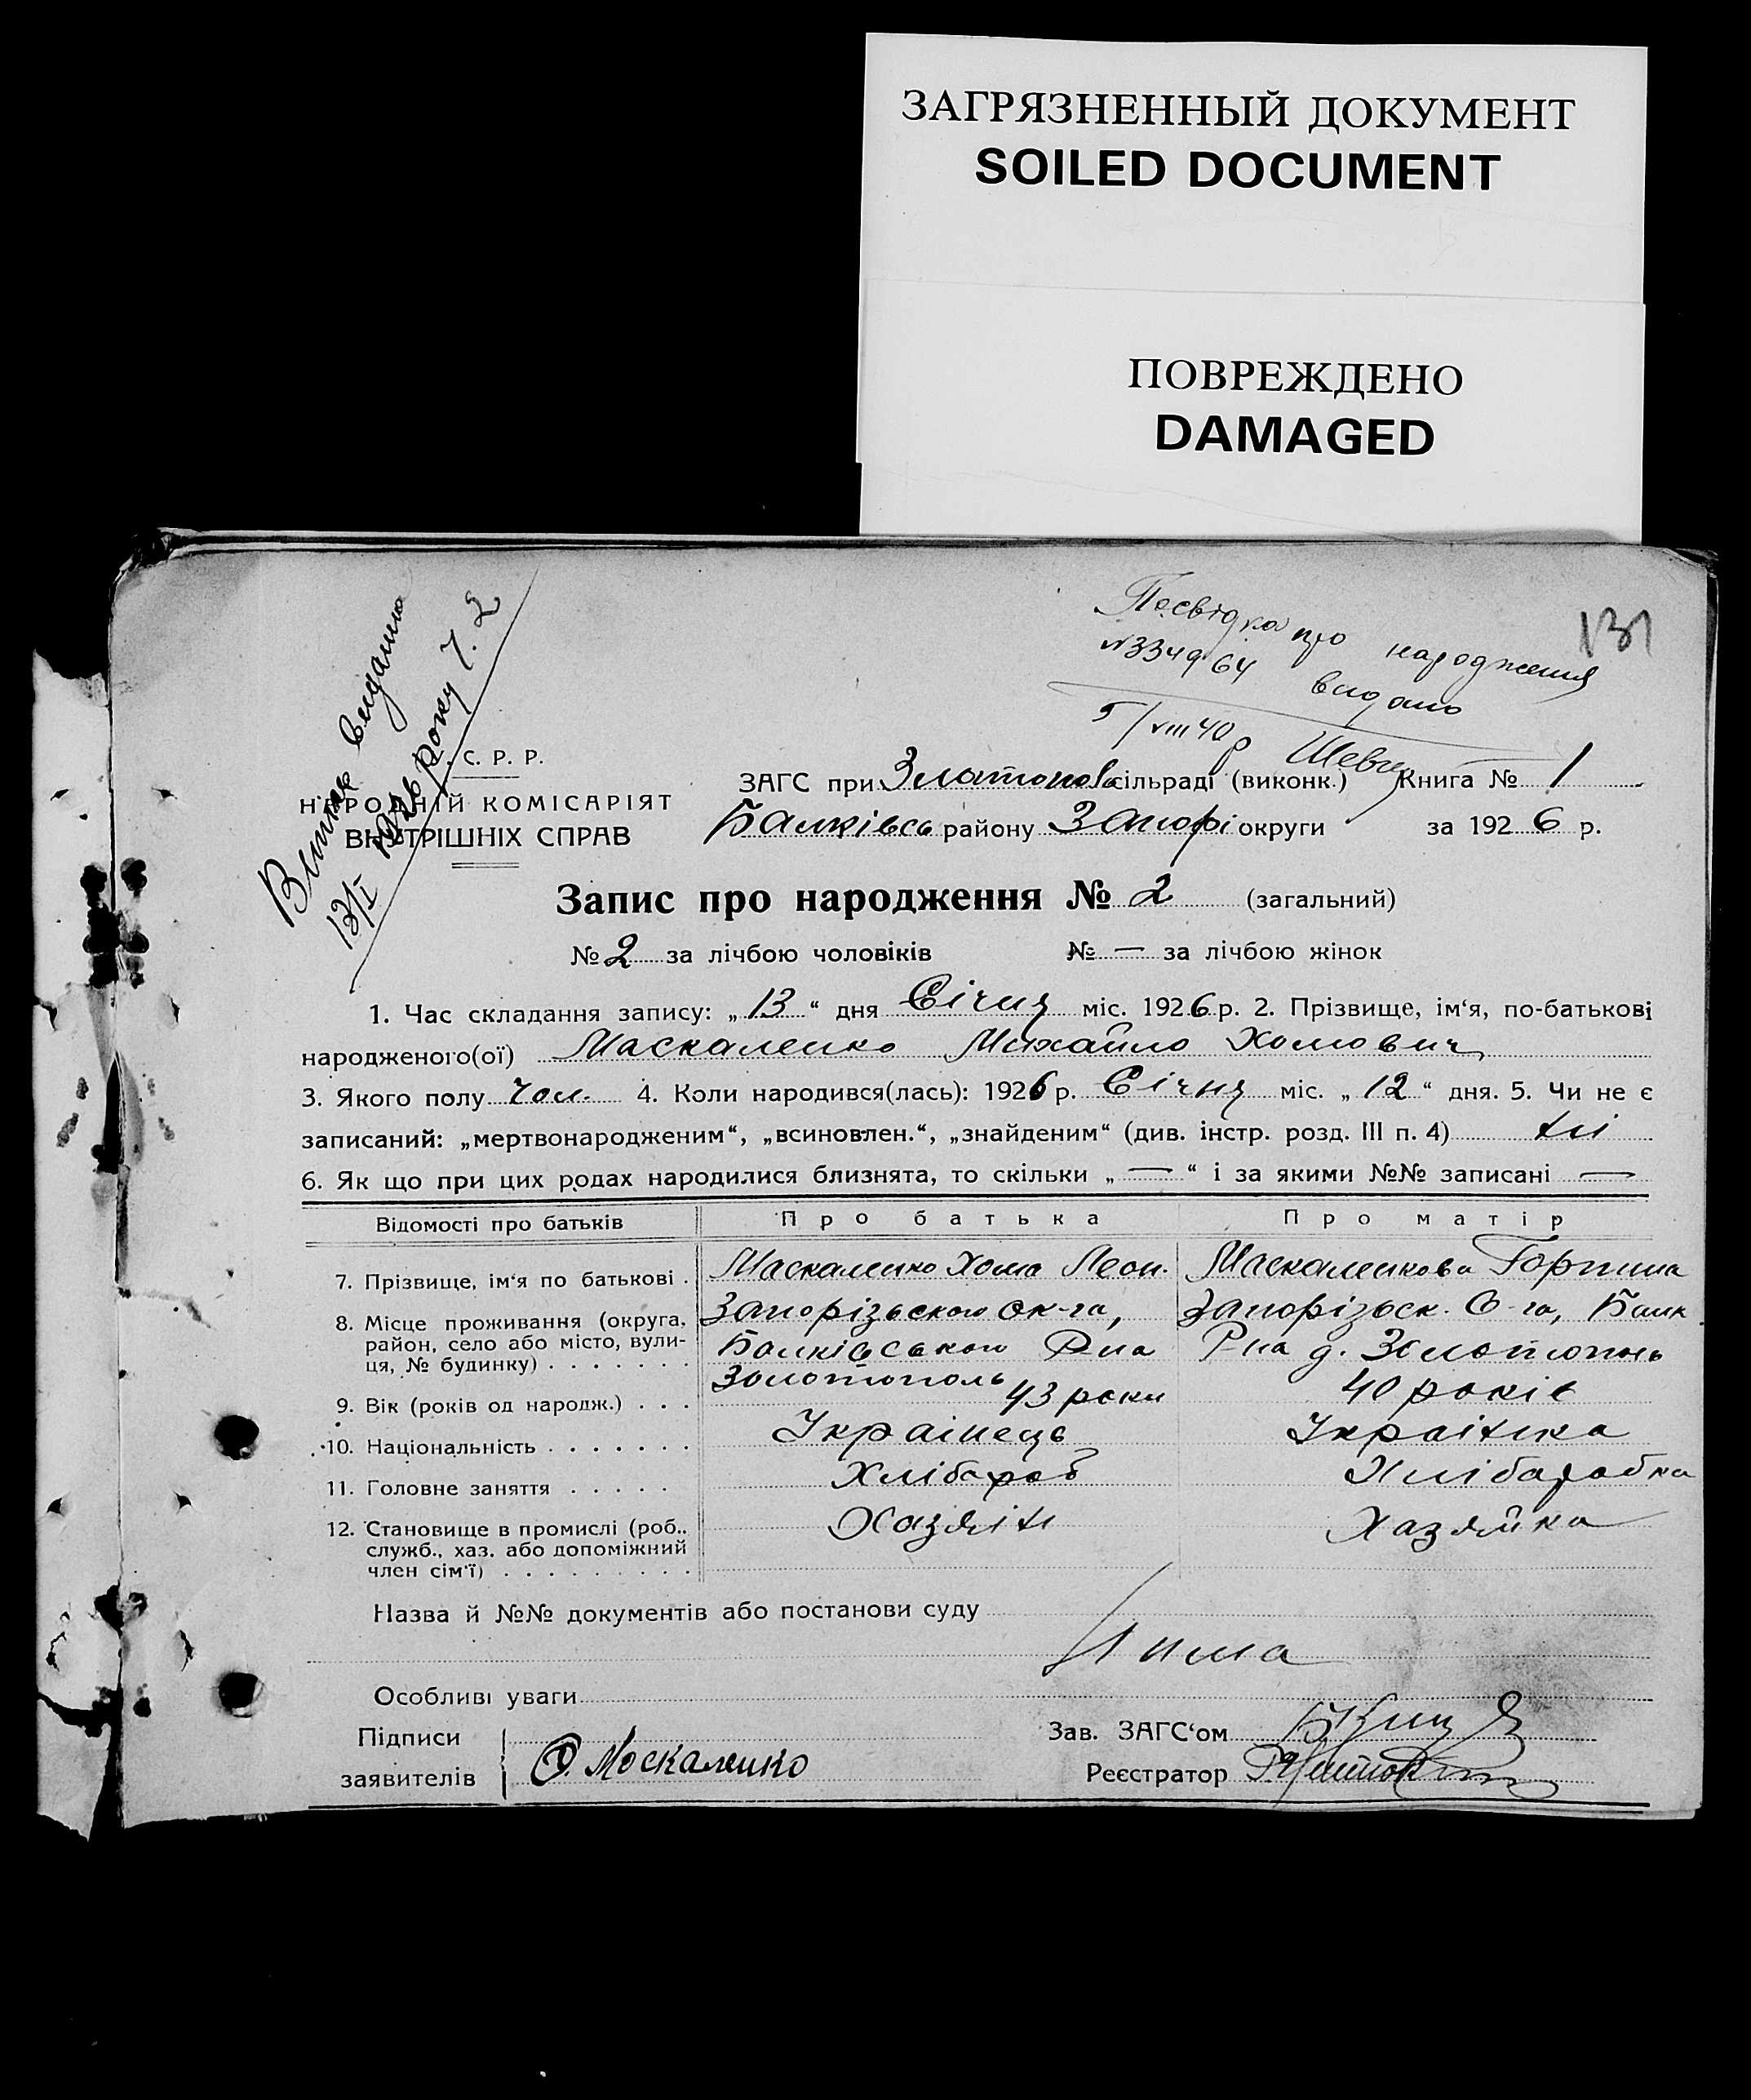 ЗАГРЯЗНЕННЫЙ ДОКУМЕНТ
SOILED DOCUMENT
ПОВРЕЖДЕНО
DAMAGED
131
Посвідка про народження
№334964 видано
5/VIII 40р
Витяг видано
13/I 1926 року Ч. 2
С. Р. Р.
НАРОДНІЙ КОМІСАРІЯТ
ВНУТРІШНІХ СПРАВ
ЗАГС при Златопол сільраді (виконк.) Книга № 1
Балківсь району Запорі округи за 1926 р.
Запис про народження № 2 (загальний)
№ 2 за лічбою чоловіків № — за лічбою жінок
1. Час складання запису: „13“ дня Січня міс. 1926 р. 2. Прізвище, ім‘я, по-батькові
народженого(ої) Маскаленко Михайло Хомович
3. Якого полу чол. 4. Коли народився(лась): 1926 р. Січня міс. „12“ дня. 5. Чи не є
записаний: „мертвонародженим“, „всиновлен.“, „знайденим“ (див. інстр. розд. III п. 4) ні
6. Як що при цих родах народилися близнята, то скільки „—“ і за якими №№ записані —
Відомості про батьків Про батька Про матір
7. Прізвище, ім‘я по батькові . Маскаленко Хома Леон. Маскаленкова Горпина
8. Місце проживання (округа, район, село або місто, вулиця, № будинку) . . . . . . . Запорізького ок-га, Балківського Р-на Золотополь Запорізьск. О-га, Балк Р-на д. Золотополь
9. Вік (років од народж.) . . . 43 роки 40 років
10. Національність . . . . . . . Українець Українка
11. Головне заняття . . . . . Хлібароб Хлібаробка
12. Становище в промислі (роб., служб., хаз. або допоміжний член сім‘ї) . . . . . . . . . Хазяїн Хазяйка
Назва й №№ документів або постанови суду
Нима
Особливі уваги
Підписи
заявителів О. Москаленко
Зав. ЗАГС‘ом
Реєстратор